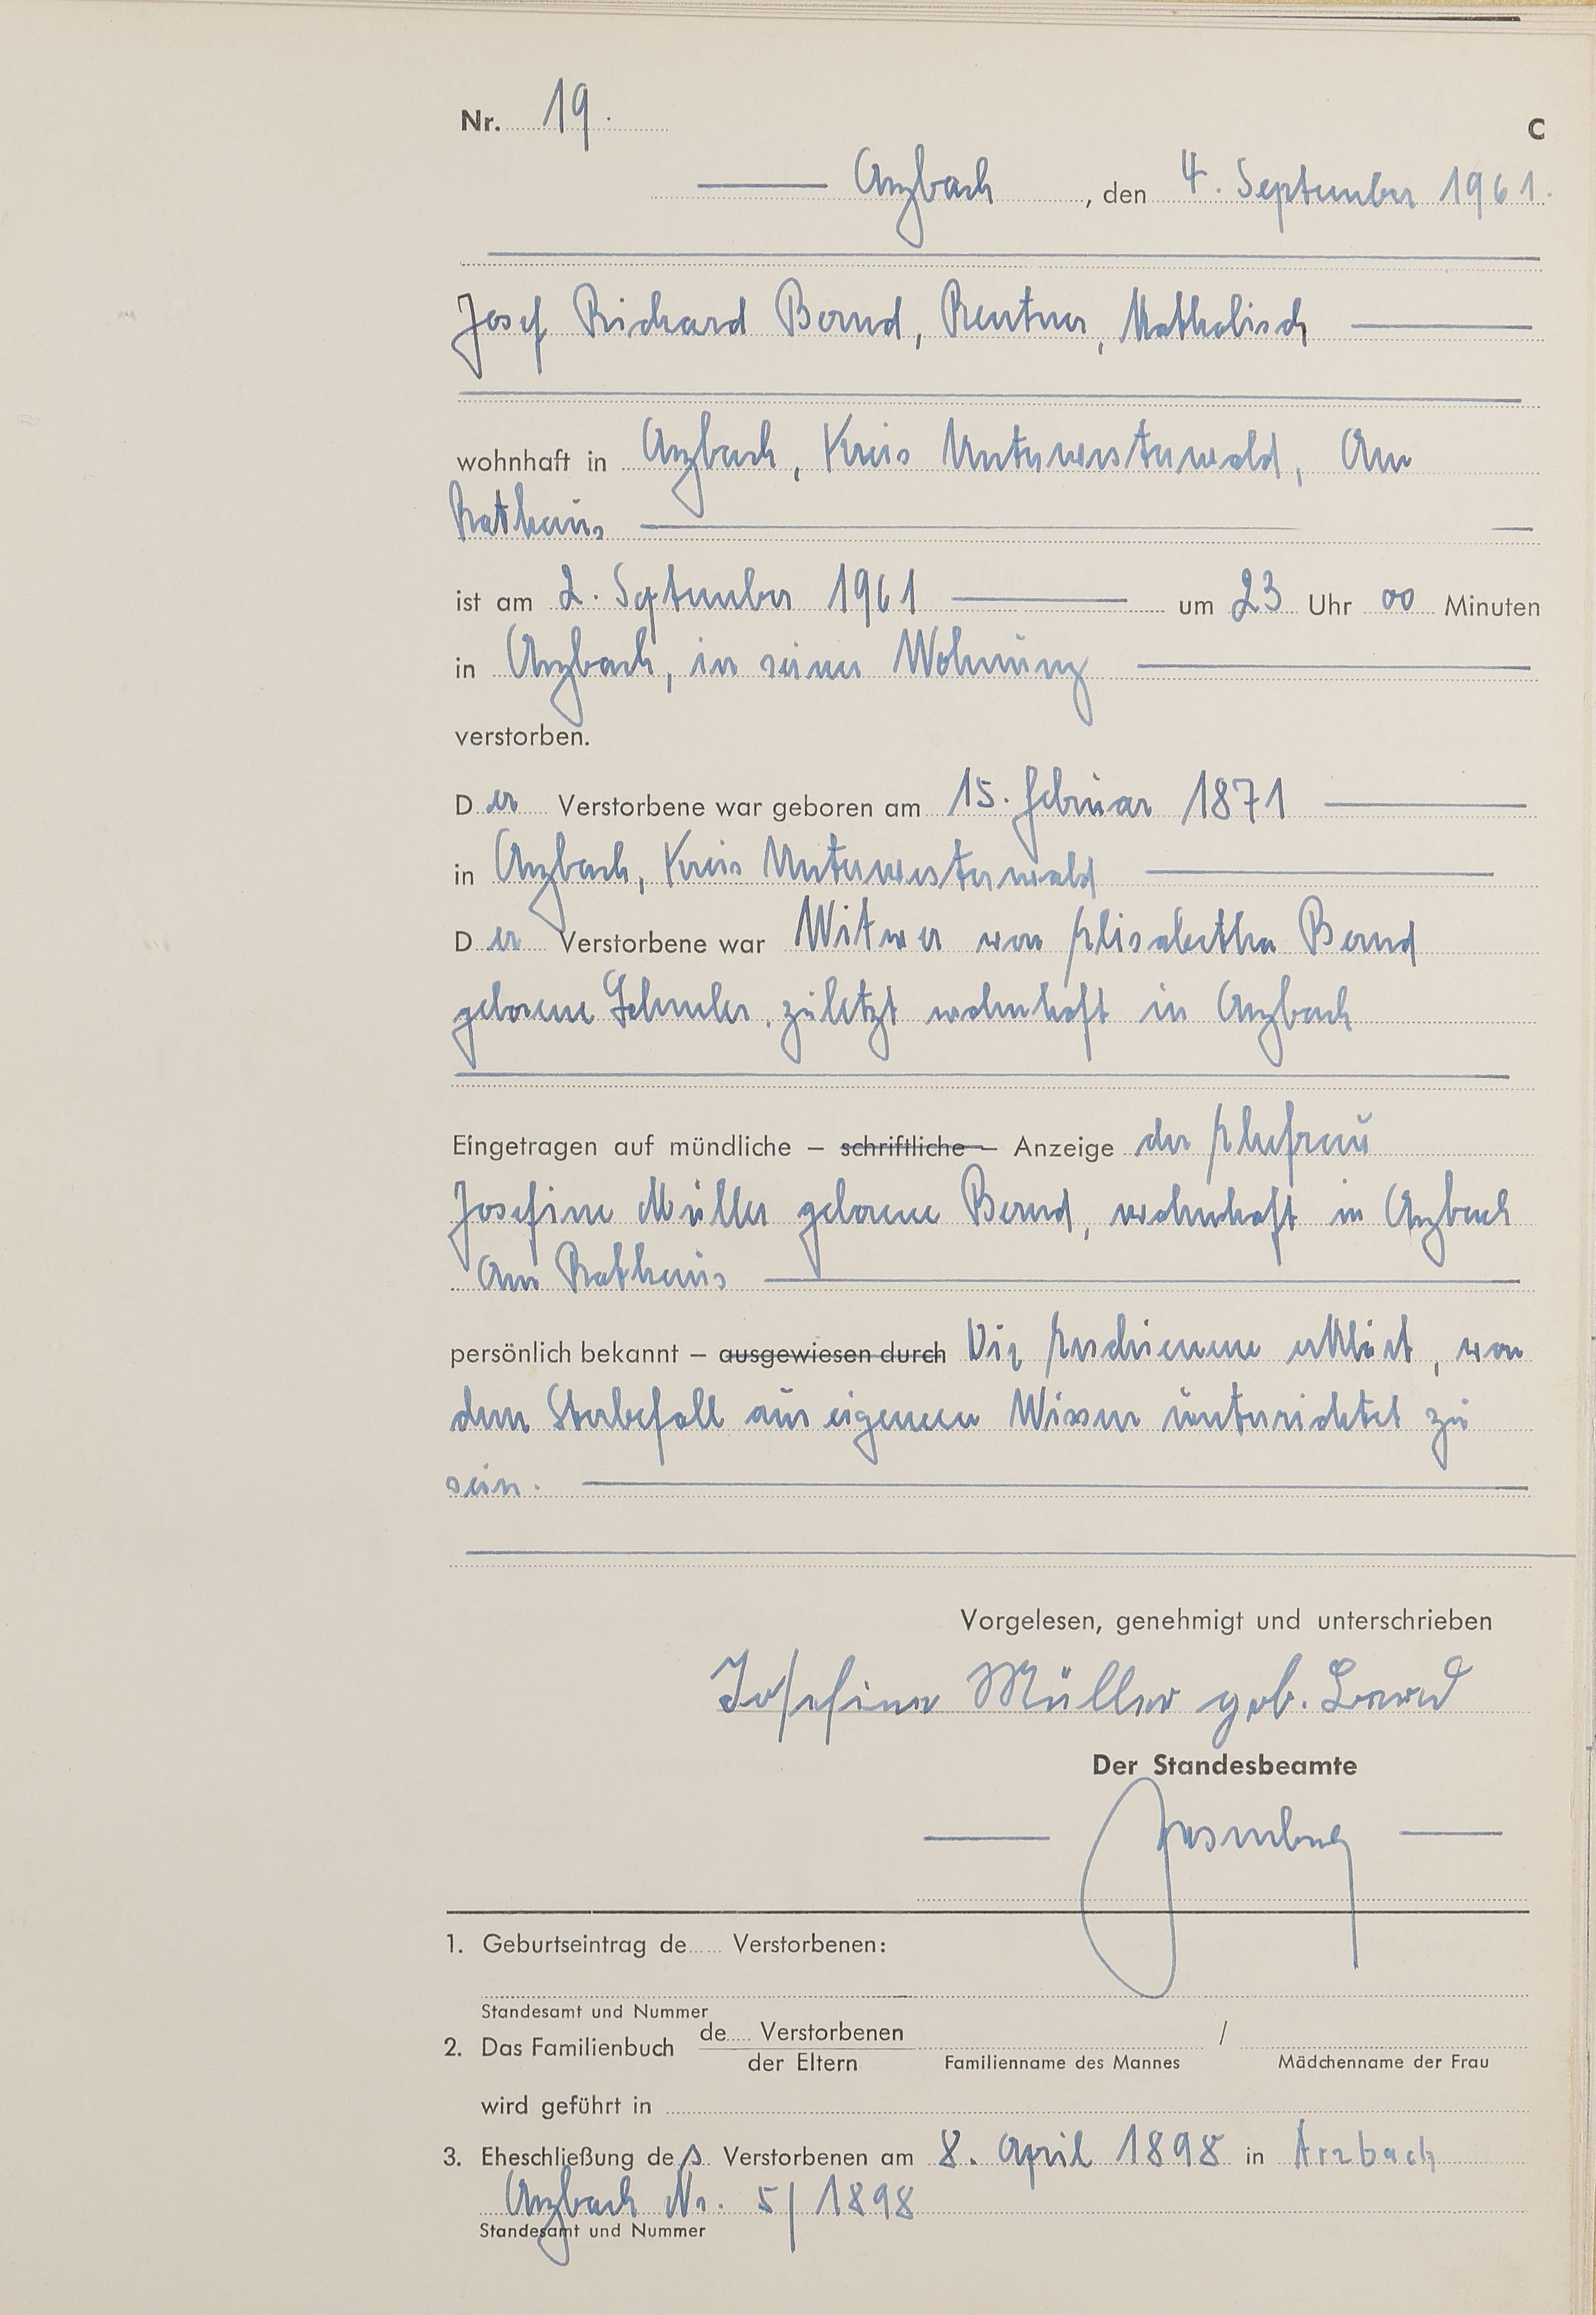 Nr. 19.
C
Arzbach, den 4. September 1961.
Josef Richard Bernd, Rentner, Katholisch
wohnhaft in Arzbach, Kreis Unterwesterwald, Am
Rathaus
ist am 2. September 1961 um 23 Uhr 00 Minuten
in Arzbach, in seiner Wohnung
verstorben.
Der Verstorbene war geboren am 15. Februar 1871
in Arzbach, Kreis Unterwesterwald
Der Verstorbene war Witwer von Elisabetha Bernd
geborene, zuletzt wohnhaft in Arzbach
Eingetragen auf mündliche – schriftliche – Anzeige der Ehefrau
Josefine Müller geborene Bernd, wohnhaft in Arzbach
Am Rathaus
persönlich bekannt – ausgewiesen durch Die Erschienene erklärt, von
dem Sterbefall aus eigenem Wissen unterrichtet zu
sein.
Vorgelesen, genehmigt und unterschrieben
Josefine Müller geb. Bernd
Der Standesbeamte
1. Geburtseintrag de Verstorbenen:
Standesamt und Nummer
2. Das Familienbuch de Verstorbenen /
der Eltern Familienname des Mannes Mädchenname der Frau
wird geführt in
3. Eheschließung des Verstorbenen am 8. April 1898 in Arzbach
Arzbach Nr. 5/1898
Standesamt und Nummer